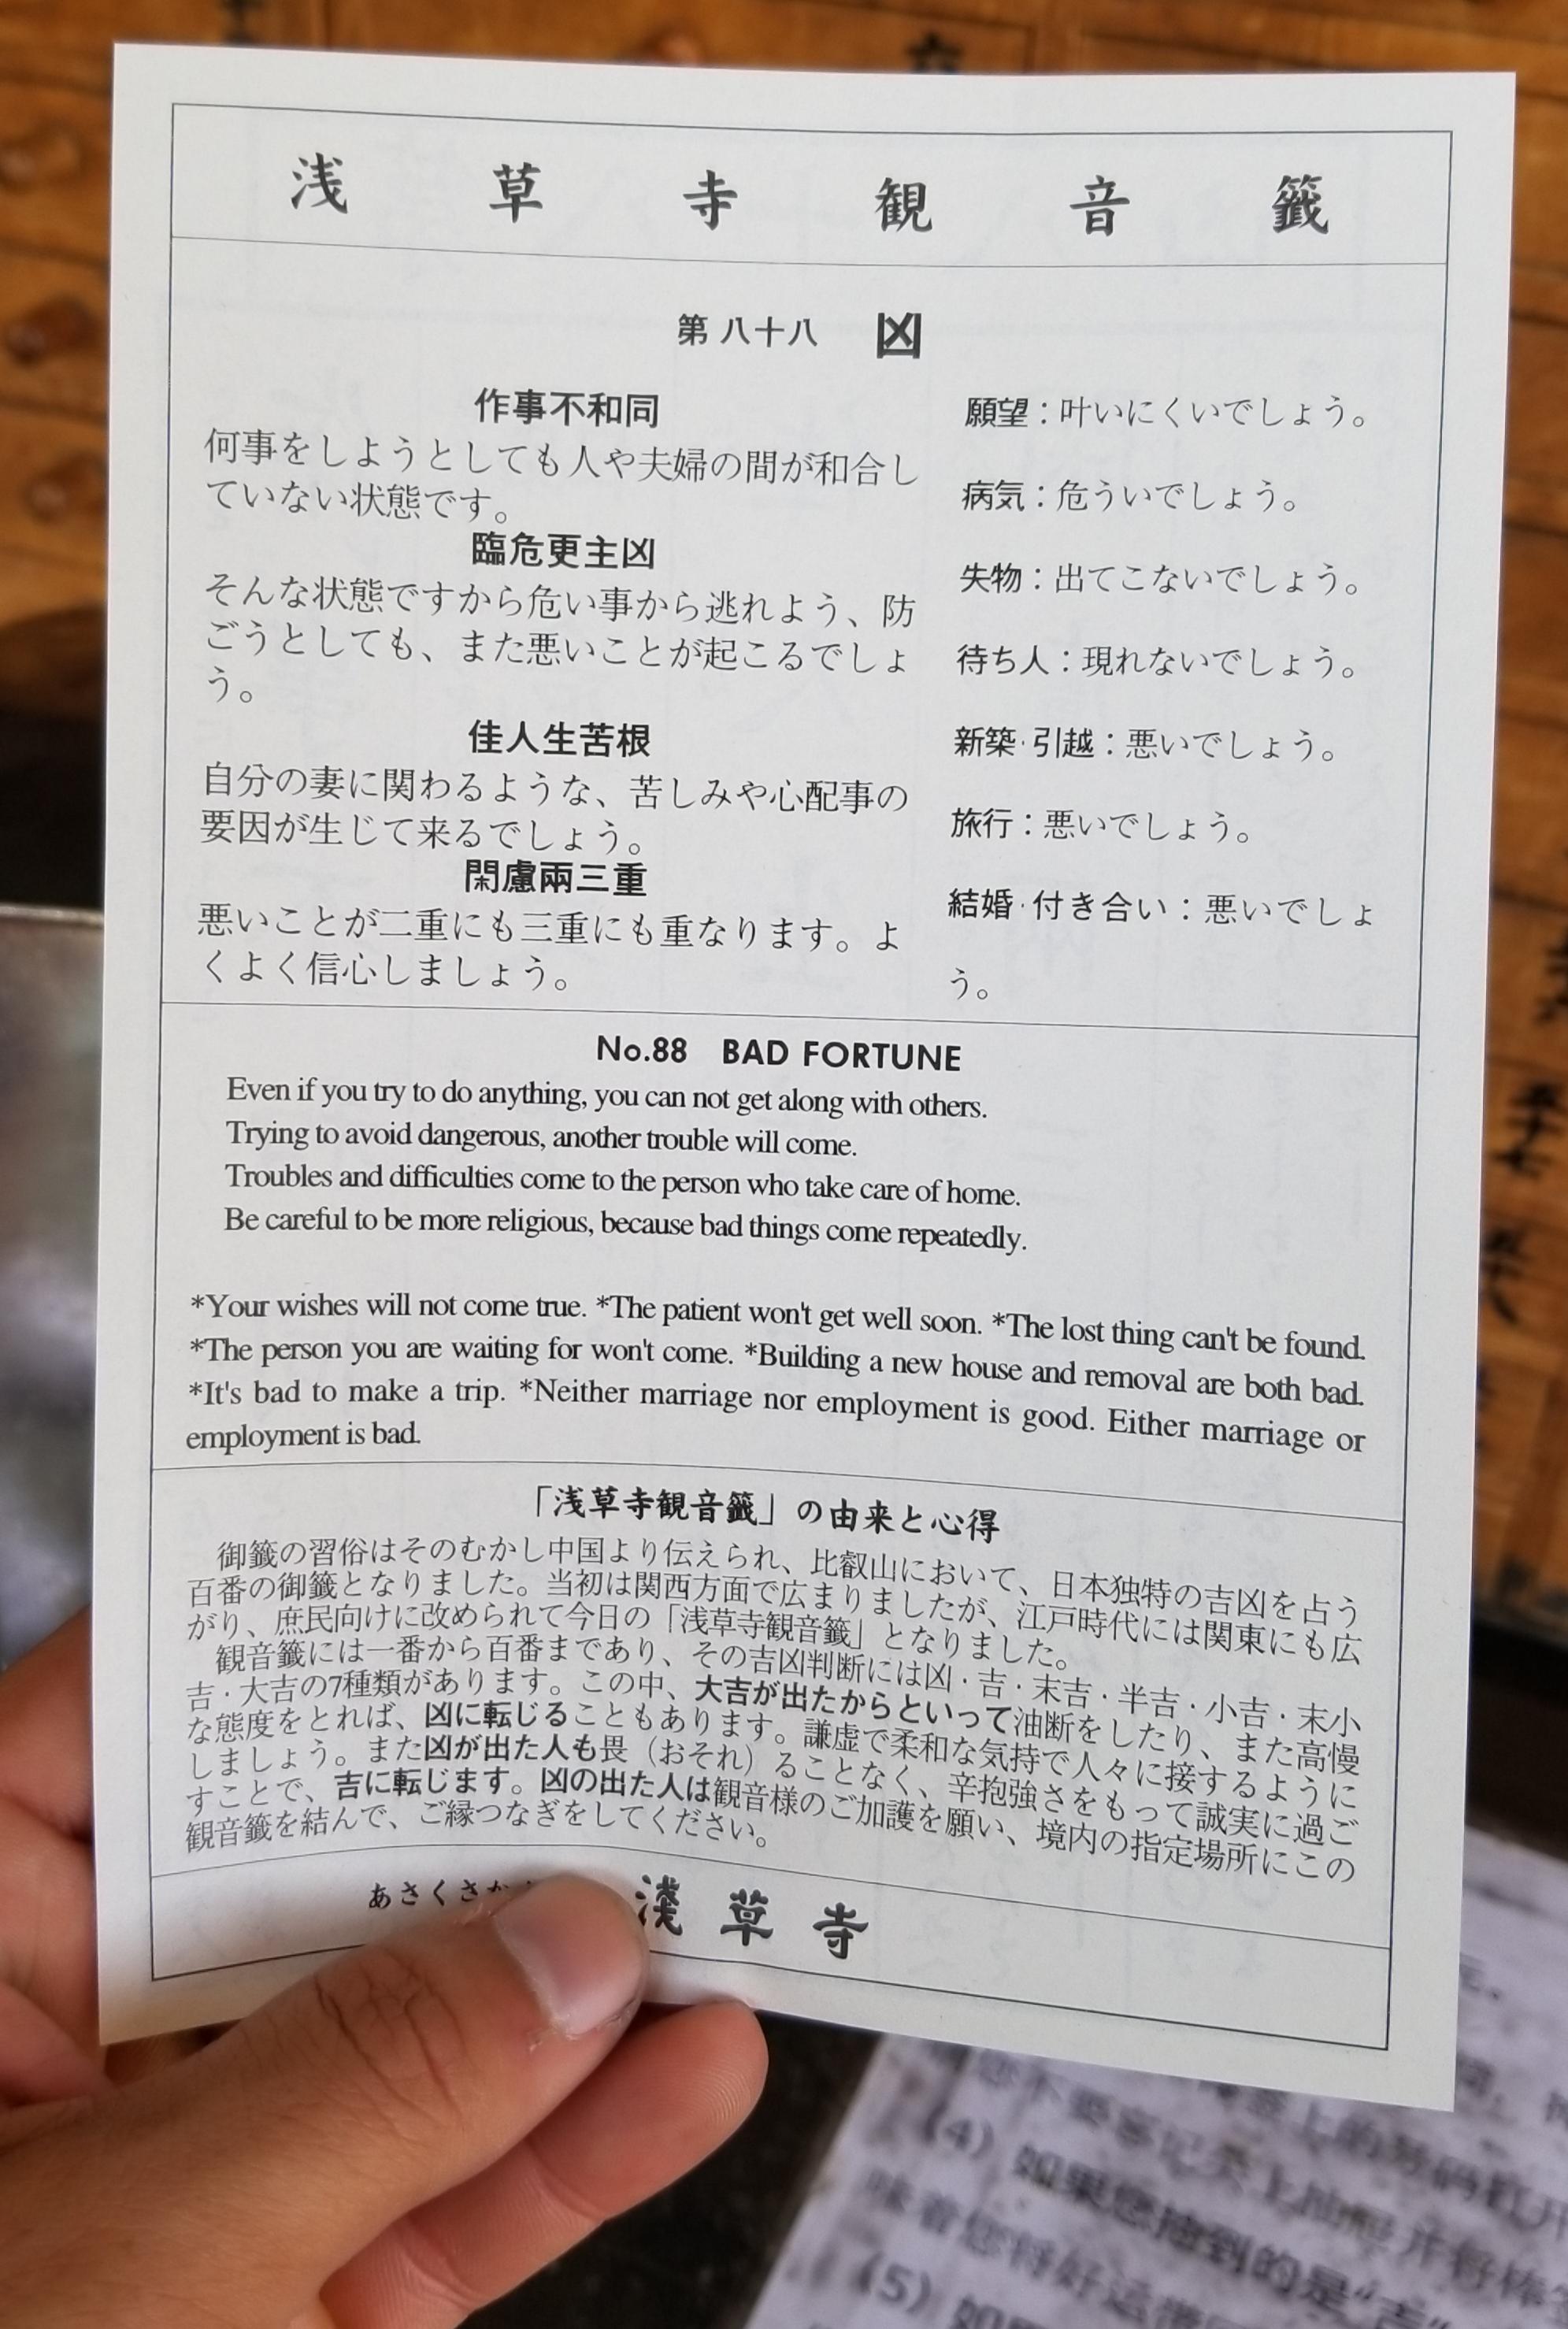 浅草寺観音籤
第八十八 凶
作事不和同
何事をしようとしても人や夫婦の間が和合し
ていない状態です。
臨危更主凶
そんな状態ですから危い事から逃れよう、防
ごうとしても、また悪いことが起こるでしょ
う。
佳人生苦根
自分の妻に関わるような、苦しみや心配事の
要因が生じて来るでしょう。
閑慮兩三重
悪いことが二重にも三重にも重なります。よ
くよく信心しましょう。
願望：叶いにくいでしょう。
病気：危ういでしょう。
失物：出てこないでしょう。
待ち人：現れないでしょう。
新築·引越：悪いでしょう。
旅行：悪いでしょう。
結婚·付き合い：悪いでしょ
う。
No.88 BAD FORTUNE
Even if you try to do anything, you can not get along with others.
Trying to avoid dangerous, another trouble will come.
Troubles and difficulties come to the person who take care of home.
Be careful to be more religious, because bad things come repeatedly.
*Your wishes will not come true. *The patient won't get well soon. *The lost thing can't be found.
*The person you are waiting for won't come. *Building a new house and removal are both bad.
*It's bad to make a trip. *Neither marriage nor employment is good. Either marriage or
employment is bad.
「浅草寺観音籤」の由来と心得
御籤の習俗はそのむかし中国より伝えられ、比叡山において、日本独特の吉凶を占う
百番の御籤となりました。当初は関西方面で広まりましたが、江戸時代には関東にも広
がり、庶民向けに改められて今日の「浅草寺観音籤」となりました。
観音籤には一番から百番まであり、その吉凶判断には凶·吉·末吉·半吉·小吉·末小
吉·大吉の7種類があります。この中、大吉が出たからといって油断をしたり、また高慢
な態度をとれば、凶に転じることもあります。謙虚で柔和な気持で人々に接するように
しましょう。また凶が出た人も畏（おそれ）ることなく、辛抱強さをもって誠実に過ご
すことで、吉に転じます。凶の出た人は観音様のご加護を願い、境内の指定場所にこの
観音籤を結んで、ご縁つなぎをしてください。
あさくさか
淺草寺
(4) 如果您抽到的是“吉”
(5) 如果